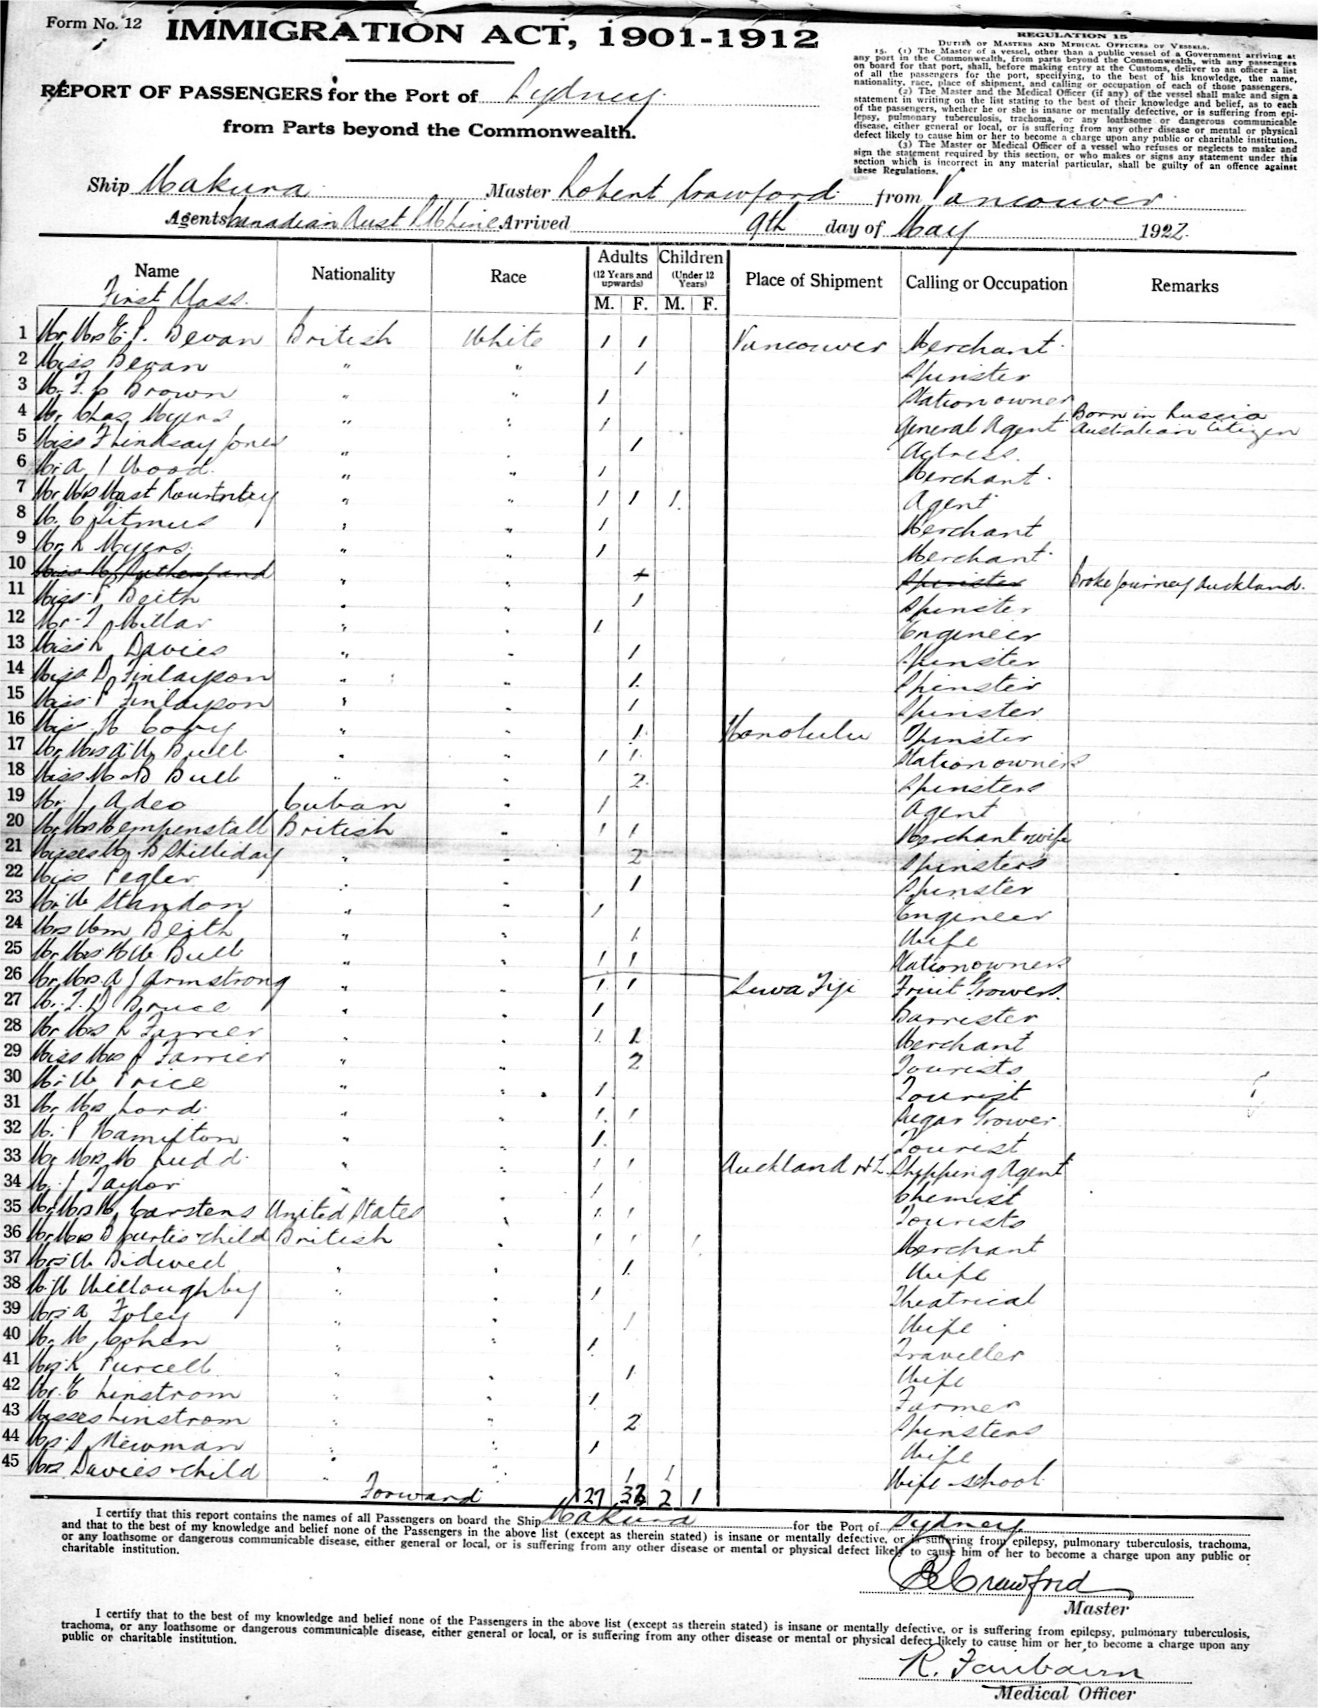 Form No. 12
IMMIGRATION ACT, 1901-1912
REGULATION 15
DUTIES OF MASTERS AND MEDICAL OFFICERS OF VESSELS.
15. (1) The Master of a vessel, other than a public vessel of a Government arriving at
any port in the Commonwealth, from parts beyond the Commonwealth, with any passengers
on board for that port, shall, before making entry at the Customs, deliver to an officer a list
of all the passengers for the port, specifying, to the best of his knowledge, the name,
nationality, race, place of shipment, and calling or occupation of each of those passengers.
(2) The Master and the Medical Officer (if any) of the vessel shall make and sign a
statement in writing on the list stating to the best of their knowledge and belief, as to each
of the passengers, whether he or she is insane or mentally defective, or is suffering from epi-
lepsy, pulmonary tuberculosis, trachoma, or any loathsome or dangerous communicable
disease, either general or local, or is suffering from any other disease or mental or physical
defect likely to cause him or her to become a charge upon any public or charitable institution.
(3) The Master or Medical Officer of a vessel who refuses or neglects to make and
sign the statement required by this section, or who makes or signs any statement under this
section which is incorrect in any material particular, shall be guilty of an offence against
these Regulations.
REPORT OF PASSENGERS for the Port of Sydney
from Parts beyond the Commonwealth.
Ship Makura Master Robert Crawford from Vancouver
Agents Canadian Aust R M Line Arrived 9th day of May 1922
Name Nationality Race Adults (12 Years and upwards) Children (Under 12 Years) Place of Shipment Calling or Occupation Remarks
First Class M. F. M. F.
1 Mr Mrs E. P. Bevan British White 1 1 Vancouver Merchant
2 Miss Bevan " " 1 Spinster
3 Mr. F. C Brown " " 1 Station owner
4 Mr Chas Myers " " 1 General Agent Born in Russia Australian Citizen
5 Miss F Lindsay Jones " " 1 Actress
6 Mr A J Wood " " 1 Merchant
7 Mr Mrs Mast " " 1 1 1 Agent
8 Mr C Titmus " " 1 Merchant
9 Mr L Myers " " 1 Merchant
10 Miss M Rutherford " " + Spinster Broke Journey Auckland
11 Miss P Beith " " 1 Spinster
12 Mr F Millar " " 1 Engineer
13 Miss L Davies " " 1 Spinster
14 Miss D Finlayson " " 1 Spinster
15 Miss P Finlayson " " 1 Spinster
16 Miss M Cory " " 1 Honolulu Spinster
17 Mr Mrs A. W Bull " " 1 1 Station owners
18 Miss M & D Bull " " 2 Spinsters
19 Mr J Adeo Cuban " 1 Agent
20 Mr Mrs Hempenstall British " 1 1 Merchant & wife
21 Misses M, B Shilliday " " 2 Spinsters
22 Miss Pegler " " 1 Spinster
23 Mr W Standon " " 1 Engineer
24 Mrs Wm Beith " " 1 Wife
25 Mr Mrs H W Bull " " 1 1 Station owners
26 Mr Mrs A J Armstrong " " 1 1 Suva Fiji Fruit Growers
27 Mr. F. D Bruce " " 1 Barrister
28 Mr Mrs L Farrier " " 1 1 Merchant
29 Miss Mrs J Farrier " " 2 Tourists
30 Mr W Price " " 1 Tourist
31 Mr Mrs Lord " " 1 1 Sugar Grower
32 Mr P Hamilton " " 1 Tourist
33 Mr Mrs M Ludd " " 1 1 Auckland N Z Shipping Agent
34 Mr J Taylor " " 1 Chemist
35 Mr Mrs H. Carstens United States " 1 1 Tourists
36 Mr Mrs D Curtis & child British " 1 1 1 Merchant
37 Mrs W Bidwell " " 1 Wife
38 Mr W Willoughby " " 1 Theatrical
39 Mrs A Foley " " 1 Wife
40 Mr. M Cohen " " 1 Traveller
41 Mrs K Purcell " " 1 Wife
42 Mr. E Linstrom " " 1 Farmer
43 Misses Linstrom " " 2 Spinsters
44 Mrs. S Newman " " 1 Wife
45 Mrs Davies & child " " 1 1 Wife & school
Forward 27 32 2 1
I certify that this report contains the names of all Passengers on board the Ship Makura for the Port of Sydney
and that to the best of my knowledge and belief none of the Passengers in the above list (except as therein stated) is insane or mentally defective, or is suffering from epilepsy, pulmonary tuberculosis, trachoma,
or any loathsome or dangerous communicable disease, either general or local, or is suffering from any other disease or mental or physical defect likely to cause him of her to become a charge upon any public or
charitable institution.
R Crawford
Master
I certify that to the best of my knowledge and belief none of the Passengers in the above list (except as therein stated) is insane or mentally defective, or is suffering from epilepsy, pulmonary tuberculosis,
trachoma, or any loathsome or dangerous communicable disease, either general or local, or is suffering from any other disease or mental or physical defect likely to cause him or her to become a charge upon any
public or charitable institution.
R. Fairbairn
Medical Officer